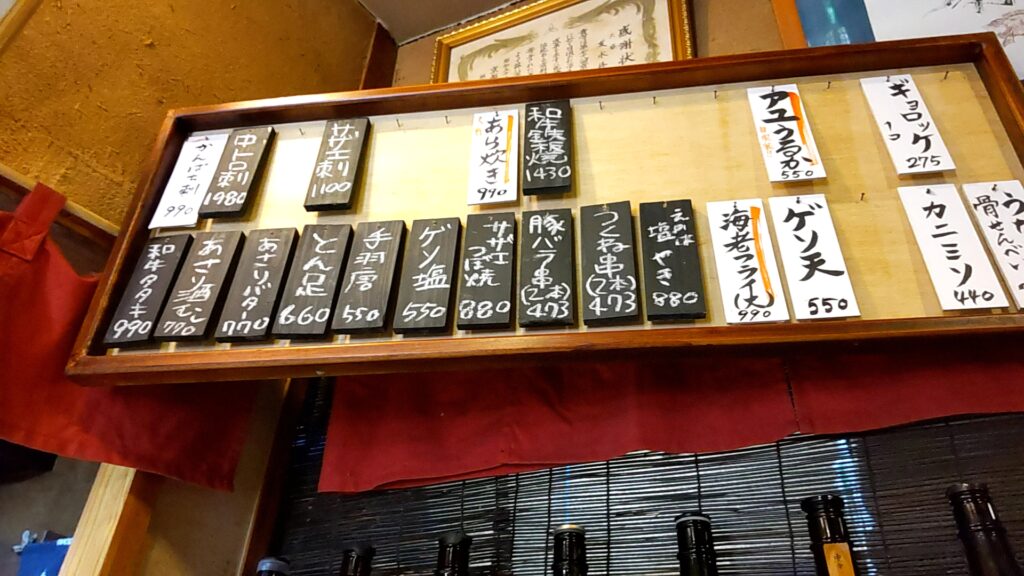 感謝状
かんぱち刺
990
中トロ刺
1980
サザエ刺
1100
あら炊き
990
和牛鉄板焼
1430
アユうるか
550
ギョロッケ
1コ
275
和牛タタキ
990
あさり酒むし
770
あさりバター
770
とん足
660
手羽唐
550
ゲソ塩
550
サザエ
つぼ焼
880
豚バラ串
(2本)
473
つくね串
(2本)
473
えのは
塩やき
880
海老フライ
990
ゲソ天
550
カニミソ
440
骨せんべい